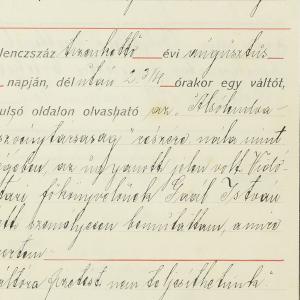 lenczszáz tizenkettő évi augusztus
napján, délután 2 3/4 órakor egy váltót,
ulsó oldalon olvasható az „Alsólendva
részvénytársaság" részére nála mint
ségében, az ugyanott jelen volt
főkönyvelőnek Gaál István
személyesen bemutattam, a mire
nyertem
váltóra fizetést nem teljesíthetünk"